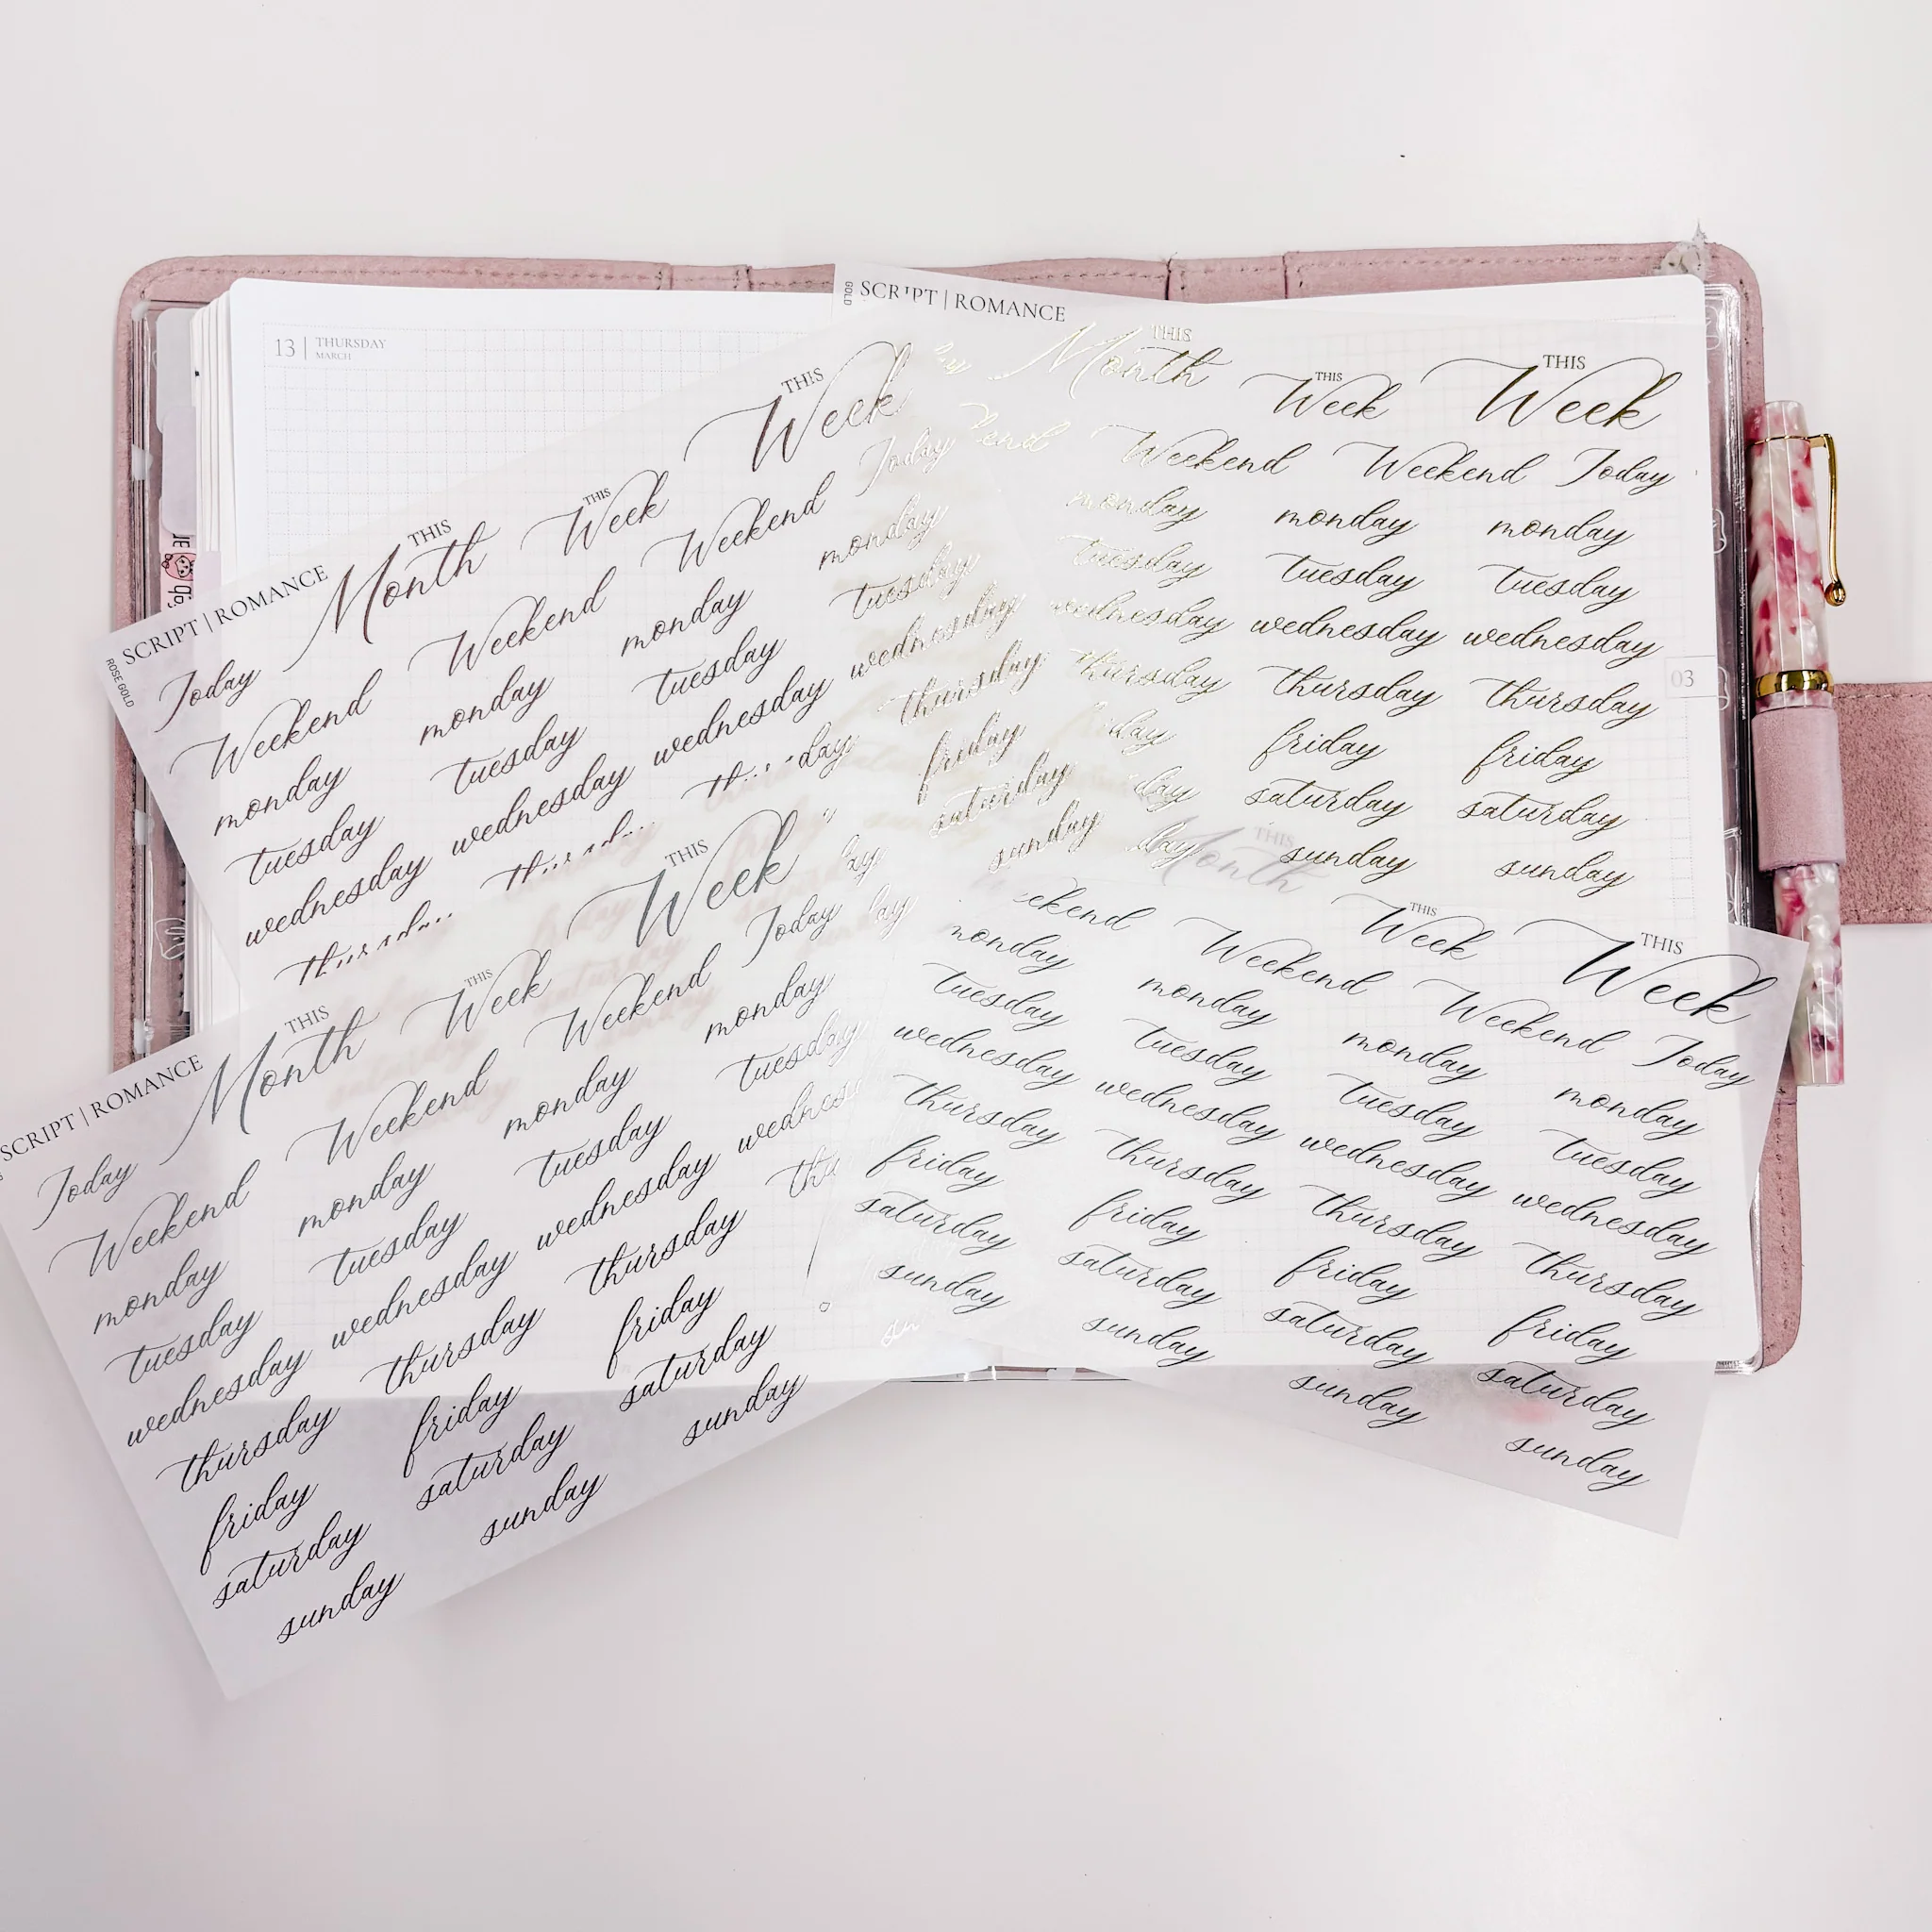 13 | THURSDAY
MARCH
GOLD
SCRIPT | ROMANCE
THIS
Month
THIS
Week
THIS
Week
Weekend Weekend Today
monday monday monday
tuesday tuesday tuesday
wednesday wednesday wednesday
thursday thursday thursday
friday friday
saturday saturday
sunday sunday
03
ROSE GOLD
SCRIPT | ROMANCE
THIS
Month
THIS
Week
THIS
Week
Today Weekend Weekend Weekend Today
monday monday monday monday
tuesday tuesday tuesday tuesday
wednesday wednesday wednesday wednesday
thursday
friday
saturday
sunday
SCRIPT | ROMANCE
THIS
Month
THIS
Week
THIS
Week
Today Weekend Weekend Weekend Today
monday monday monday monday
tuesday tuesday tuesday tuesday
wednesday wednesday wednesday
thursday thursday thursday
friday friday friday
saturday saturday saturday
sunday sunday sunday
THIS
Month
THIS
Week
THIS
Week
Weekend Weekend Today
monday monday monday monday
tuesday tuesday tuesday tuesday
wednesday wednesday wednesday wednesday
thursday thursday thursday thursday
friday friday friday friday
saturday saturday saturday saturday
sunday sunday sunday sunday